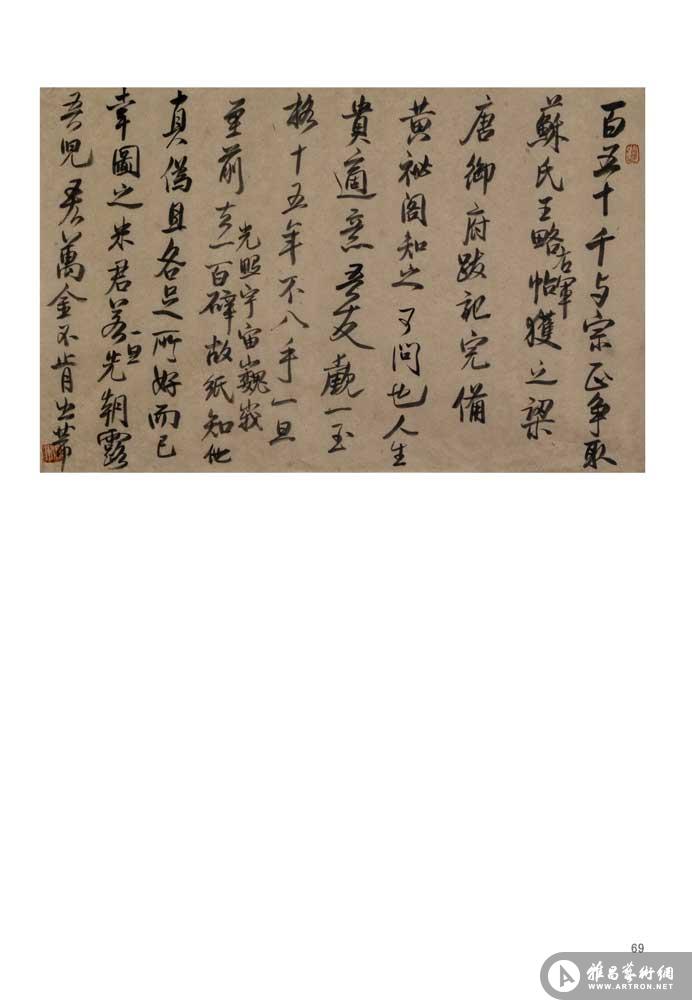 百五十千与宗正争取
蘇氏王略帖獲之梁
右軍
唐御府跋記完備
黄祕阁知之可问也人生
貴適意吾友覩一玉
格十五年不入手一旦
光照宇宙巍峩
至前去一百碎故紙知他
真偽且各足所好而已
幸圖之米君若一旦先朝露
吾兒吝萬金不肯出芾
69
雅昌藝術網
WWW.ARTRON.NET